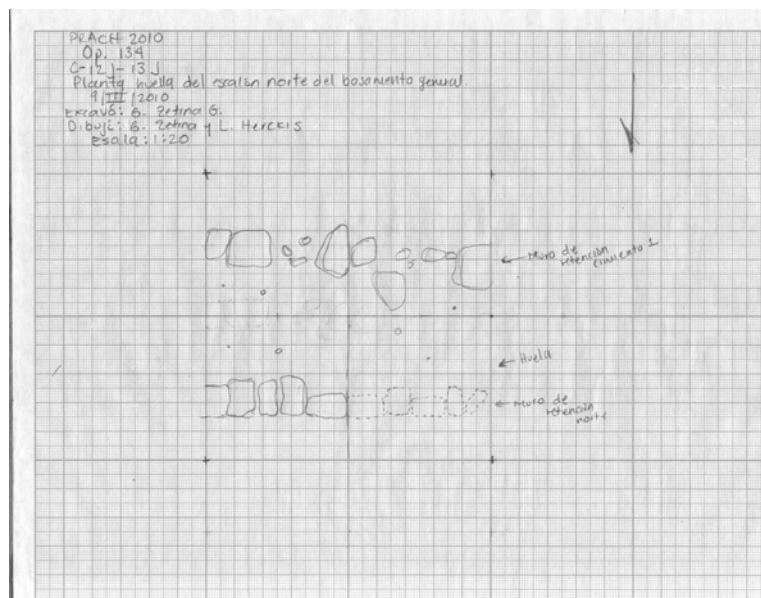 PRACH 2010
Op. 134
C-12J-13J
Planta huella del escalón norte del basamento general.
9/III/2010
Excavó: S. Zetina G.
Dibujó: S. Zetina y L. Herckis
Escala: 1:20
Muro de
retención
cimiento 1
Huela
Muro de
retención
norte